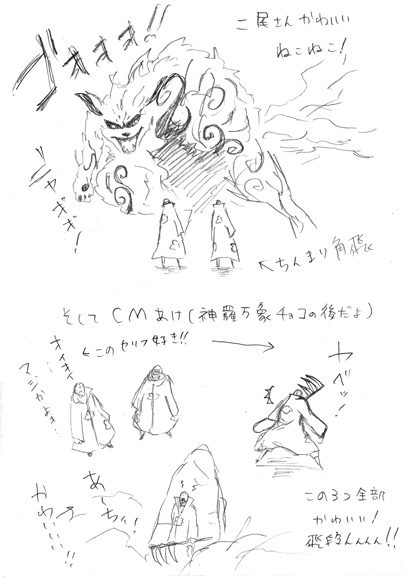 ブオオオ!!
二尾さんかわいい
ねこねこ!
シャギギ!
↖ちんまり角飛
そしてCMあけ(神羅万象チョコの後だよ)
←このセリフ好き!!
オイオイ
マジかよォ…
ヤベッ!
あーちぃ!
かわいい!!
この3つ全部
かわいい!
飛段んんんん!!